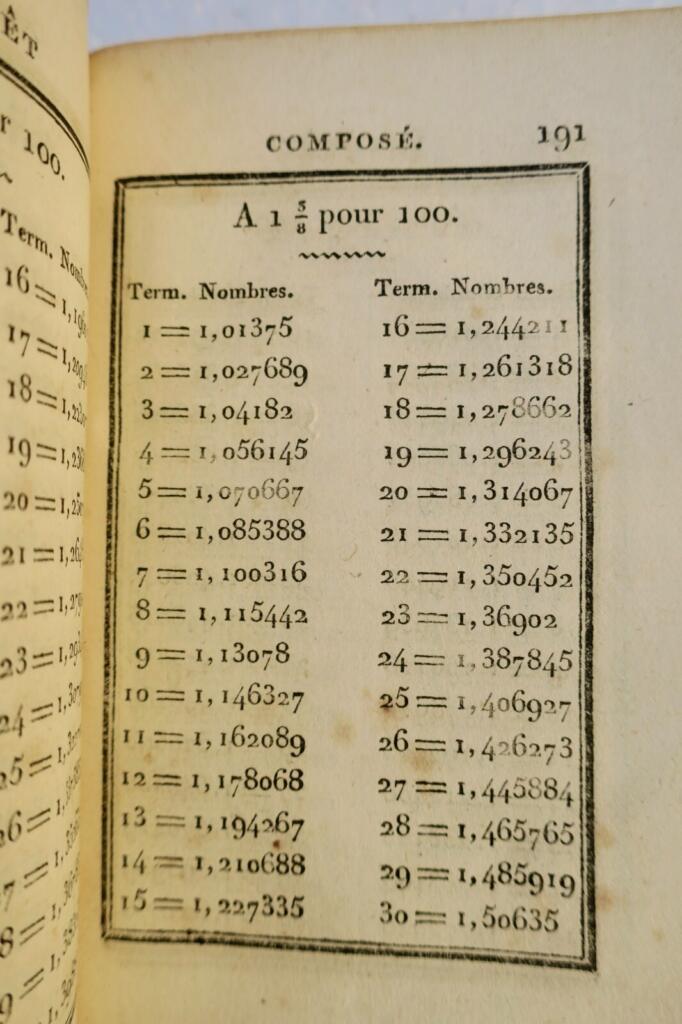 ÊT
r 100.
Term.
16 =
17 =
18 =
19 =
20 =
21 =
22 =
COMPOSÉ. 191
A 1 5/8 pour 100.
Term. Nombres. Term. Nombres.
1 = 1,01375 16 = 1,244211
2 = 1,027689 17 = 1,261318
3 = 1,04182 18 = 1,278662
4 = 1,056145 19 = 1,296243
5 = 1,070667 20 = 1,314067
6 = 1,085388 21 = 1,332135
7 = 1,100316 22 = 1,350452
8 = 1,115442 23 = 1,36902
9 = 1,13078 24 = 1,387845
10 = 1,146327 25 = 1,406927
11 = 1,162089 26 = 1,426273
12 = 1,178068 27 = 1,445884
13 = 1,194267 28 = 1,465765
14 = 1,210688 29 = 1,485919
15 = 1,227335 30 = 1,50635